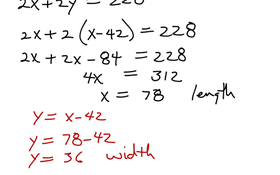 2x+2y=228
2x+2(x-42)=228
2x+2x-84=228
4x = 312
x = 78 length
y=x-42
y=78-42
y=36 width